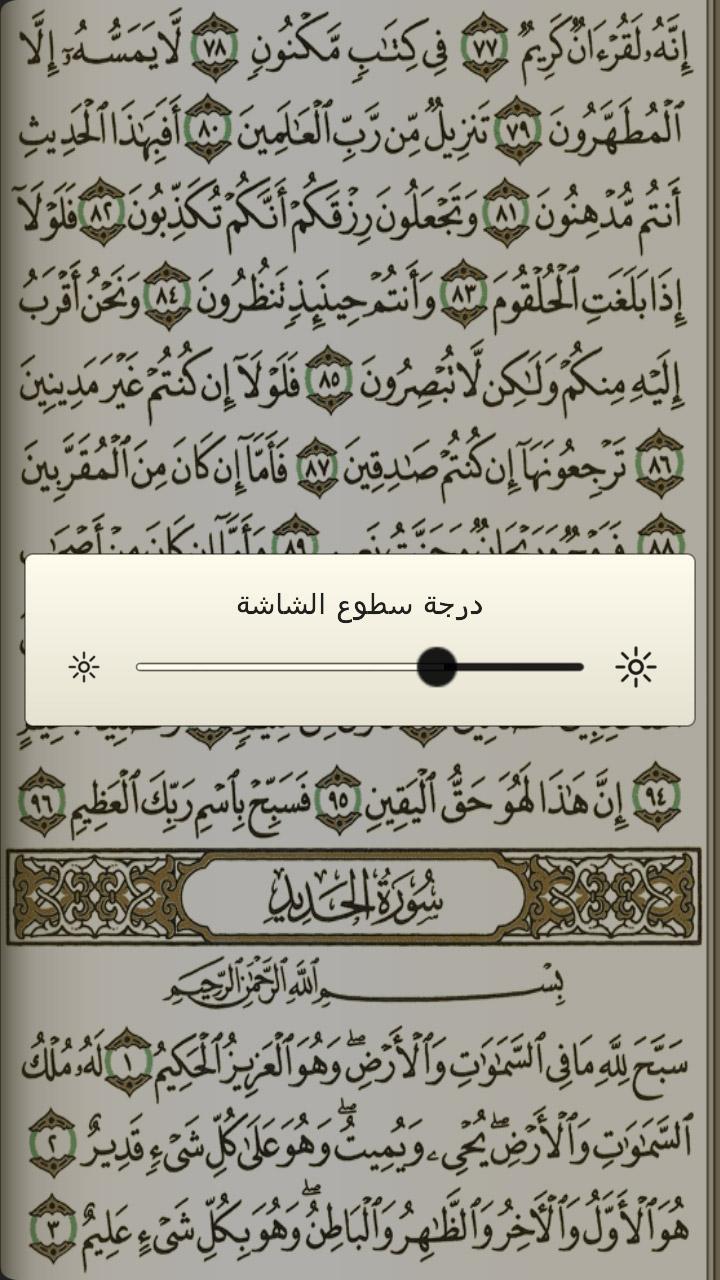 إِنَّهُۥ لَقُرْءَانٌ كَرِيمٌ ٧٧ فِى كِتَٰبٍ مَّكْنُونٍ ٧٨ لَّا يَمَسُّهُۥٓ إِلَّا
ٱلْمُطَهَّرُونَ ٧٩ تَنزِيلٌ مِّن رَّبِّ ٱلْعَٰلَمِينَ ٨٠ أَفَبِهَٰذَا ٱلْحَدِيثِ
أَنتُم مُّدْهِنُونَ ٨١ وَتَجْعَلُونَ رِزْقَكُمْ أَنَّكُمْ تُكَذِّبُونَ ٨٢ فَلَوْلَآ
إِذَا بَلَغَتِ ٱلْحُلْقُومَ ٨٣ وَأَنتُمْ حِينَئِذٍ تَنظُرُونَ ٨٤ وَنَحْنُ أَقْرَبُ
إِلَيْهِ مِنكُمْ وَلَٰكِن لَّا تُبْصِرُونَ ٨٥ فَلَوْلَآ إِن كُنتُمْ غَيْرَ مَدِينِينَ
٨٦ تَرْجِعُونَهَآ إِن كُنتُمْ صَٰدِقِينَ ٨٧ فَأَمَّآ إِن كَانَ مِنَ ٱلْمُقَرَّبِينَ
٨٨ فَرَوْحٌ وَرَيْحَانٌ وَجَنَّتُ نَعِيمٍ ٨٩ وَأَمَّآ إِن كَانَ مِنْ أَصْحَٰبِ
درجة سطوع الشاشة
٩٤ إِنَّ هَٰذَا لَهُوَ حَقُّ ٱلْيَقِينِ ٩٥ فَسَبِّحْ بِٱسْمِ رَبِّكَ ٱلْعَظِيمِ ٩٦
سُورَةُ الحَدِيدِ
بِسْمِ ٱللَّهِ ٱلرَّحْمَٰنِ ٱلرَّحِيمِ
سَبَّحَ لِلَّهِ مَا فِى ٱلسَّمَٰوَٰتِ وَٱلْأَرْضِ ۖ وَهُوَ ٱلْعَزِيزُ ٱلْحَكِيمُ ١ لَهُۥ مُلْكُ
ٱلسَّمَٰوَٰتِ وَٱلْأَرْضِ ۖ يُحْىِۦ وَيُمِيتُ ۖ وَهُوَ عَلَىٰ كُلِّ شَىْءٍ قَدِيرٌ ٢
هُوَ ٱلْأَوَّلُ وَٱلْءَاخِرُ وَٱلظَّٰهِرُ وَٱلْبَاطِنُ ۖ وَهُوَ بِكُلِّ شَىْءٍ عَلِيمٌ ٣